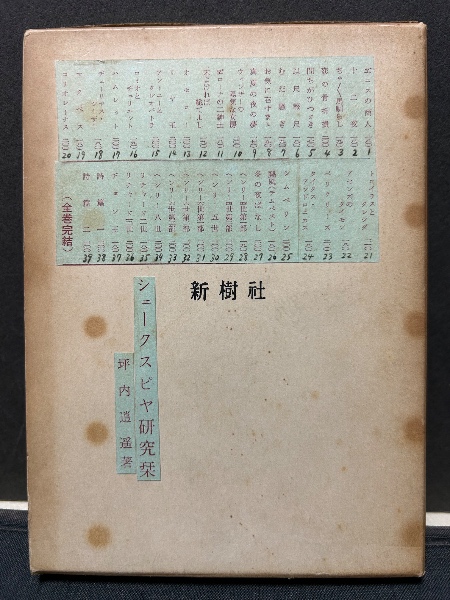 ヹニスの商人 1
十二夜 2
ぢゃぢゃ馬馴らし 3
恋の骨折損 4
間ちがひつづき 5
以尺報尺 6
むだ騒ぎ 7
お気に召すまゝ 8
真夏の夜の夢 9
ウィンザーの陽気な女房 10
ヹローナの二紳士 11
末よければ総てよし 12
オセロー 13
リヤ王 14
アントニーとクレオパトラ 15
ロミオとヂュリエット 16
ハムレット 17
ヂュリヤス・シーザー 18
マクベス 19
コリオレーナス 20
トロイラスとクレシダ 21
アセンズのタイモン 22
ペリクリーズ 23
タイタス・アンドロニカス 24
シムベリン 25
颱風(テムペスト) 26
冬の夜ばなし 27
ヘンリー四世第一部 28
ヘンリー四世第二部 29
ヘンリー五世 30
ヘンリー六世第一部 31
ヘンリー六世第二部 32
ヘンリー六世第三部 33
ヘンリー八世 34
リチャード三世 35
リチャード二世 36
ヂョン王 37
詩篇 一 38
詩篇 二 39
(全巻完結)
新樹社
シェークスピヤ研究栞
坪内逍遥著